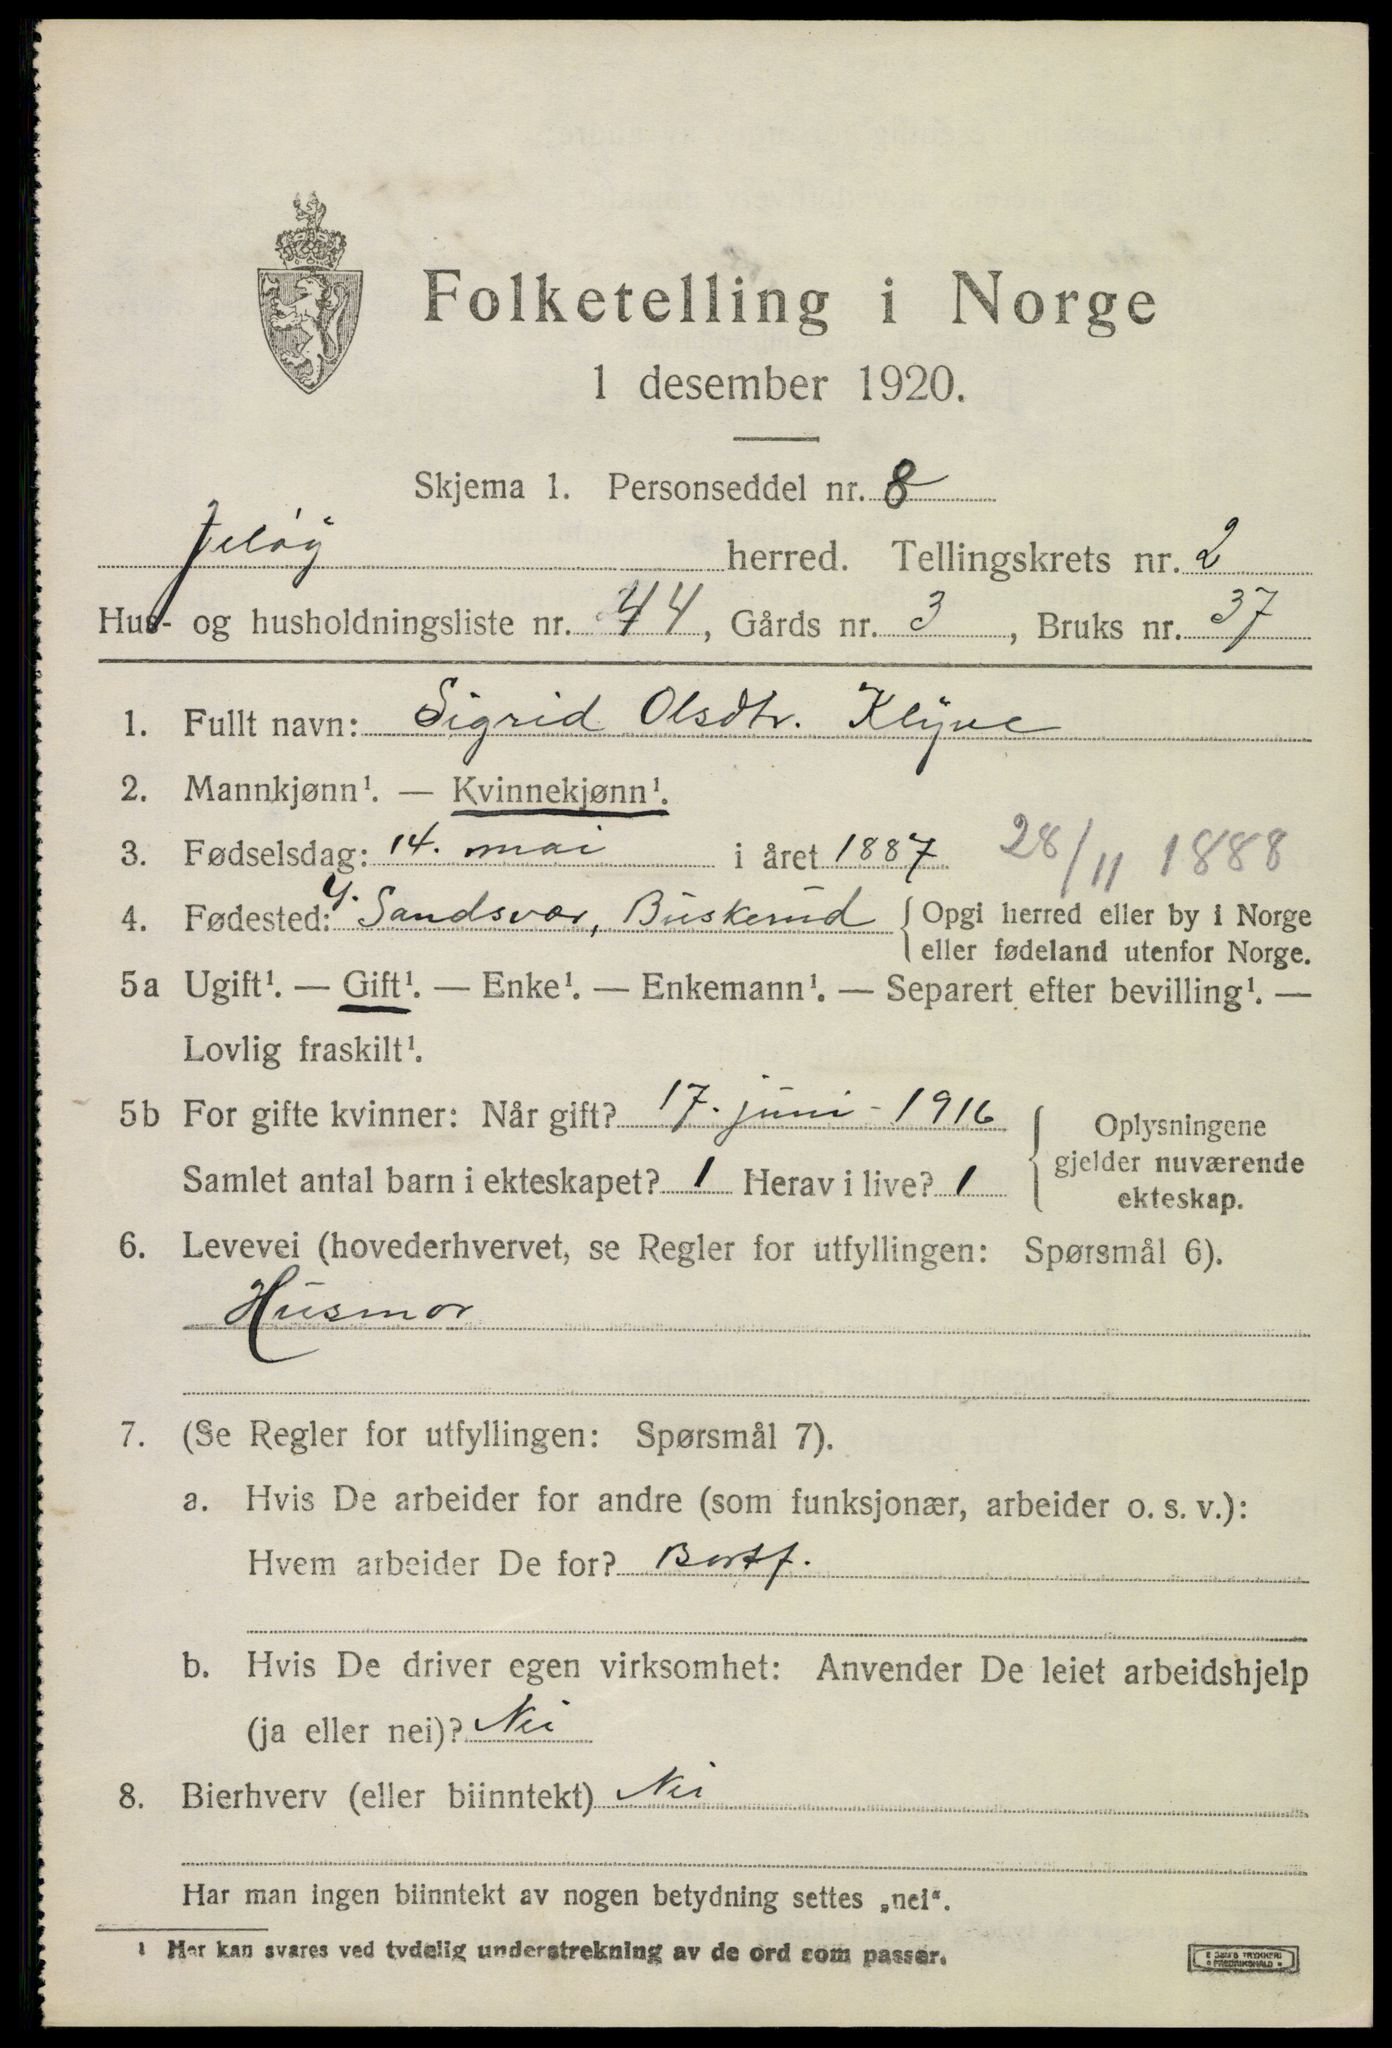 Folketelling i Norge
1 desember 1920.
Skjema 1. Personseddel nr. 8
Jeløy herred. Tellingskrets nr. 2
Hus- og husholdningsliste nr. 44, Gårds nr. 3, Bruks nr. 37
1. Fullt navn: Sigrid Olsdtr. Klyve
2. Mannkjønn¹. — Kvinnekjønn¹.
3. Fødselsdag: 14. mai i året 1887 28/11 1888
4. Fødested: Y. Sandsvær, Buskerud { Opgi herred eller by i Norge
eller fødeland utenfor Norge.
5a Ugift¹. — Gift¹. — Enke¹. — Enkemann¹. — Separert efter bevilling¹. —
Lovlig fraskilt¹.
5b For gifte kvinner: Når gift? 17. juni - 1916
Samlet antal barn i ekteskapet? 1 Herav i live? 1
Oplysningene
gjelder nuværende
ekteskap.
6. Levevei (hovederhvervet, se Regler for utfyllingen: Spørsmål 6).
Husmor
7. (Se Regler for utfyllingen: Spørsmål 7).
a. Hvis De arbeider for andre (som funksjonær, arbeider o. s. v.):
Hvem arbeider De for? Bortf.
b. Hvis De driver egen virksomhet: Anvender De leiet arbeidshjelp
(ja eller nei)? Nei
8. Bierhverv (eller biinntekt) Nei
Har man ingen biinntekt av nogen betydning settes „nei“.
¹ Her kan svares ved tydelig understrekning av de ord som passer.
TRYKKERI
FREDRIKSHALD